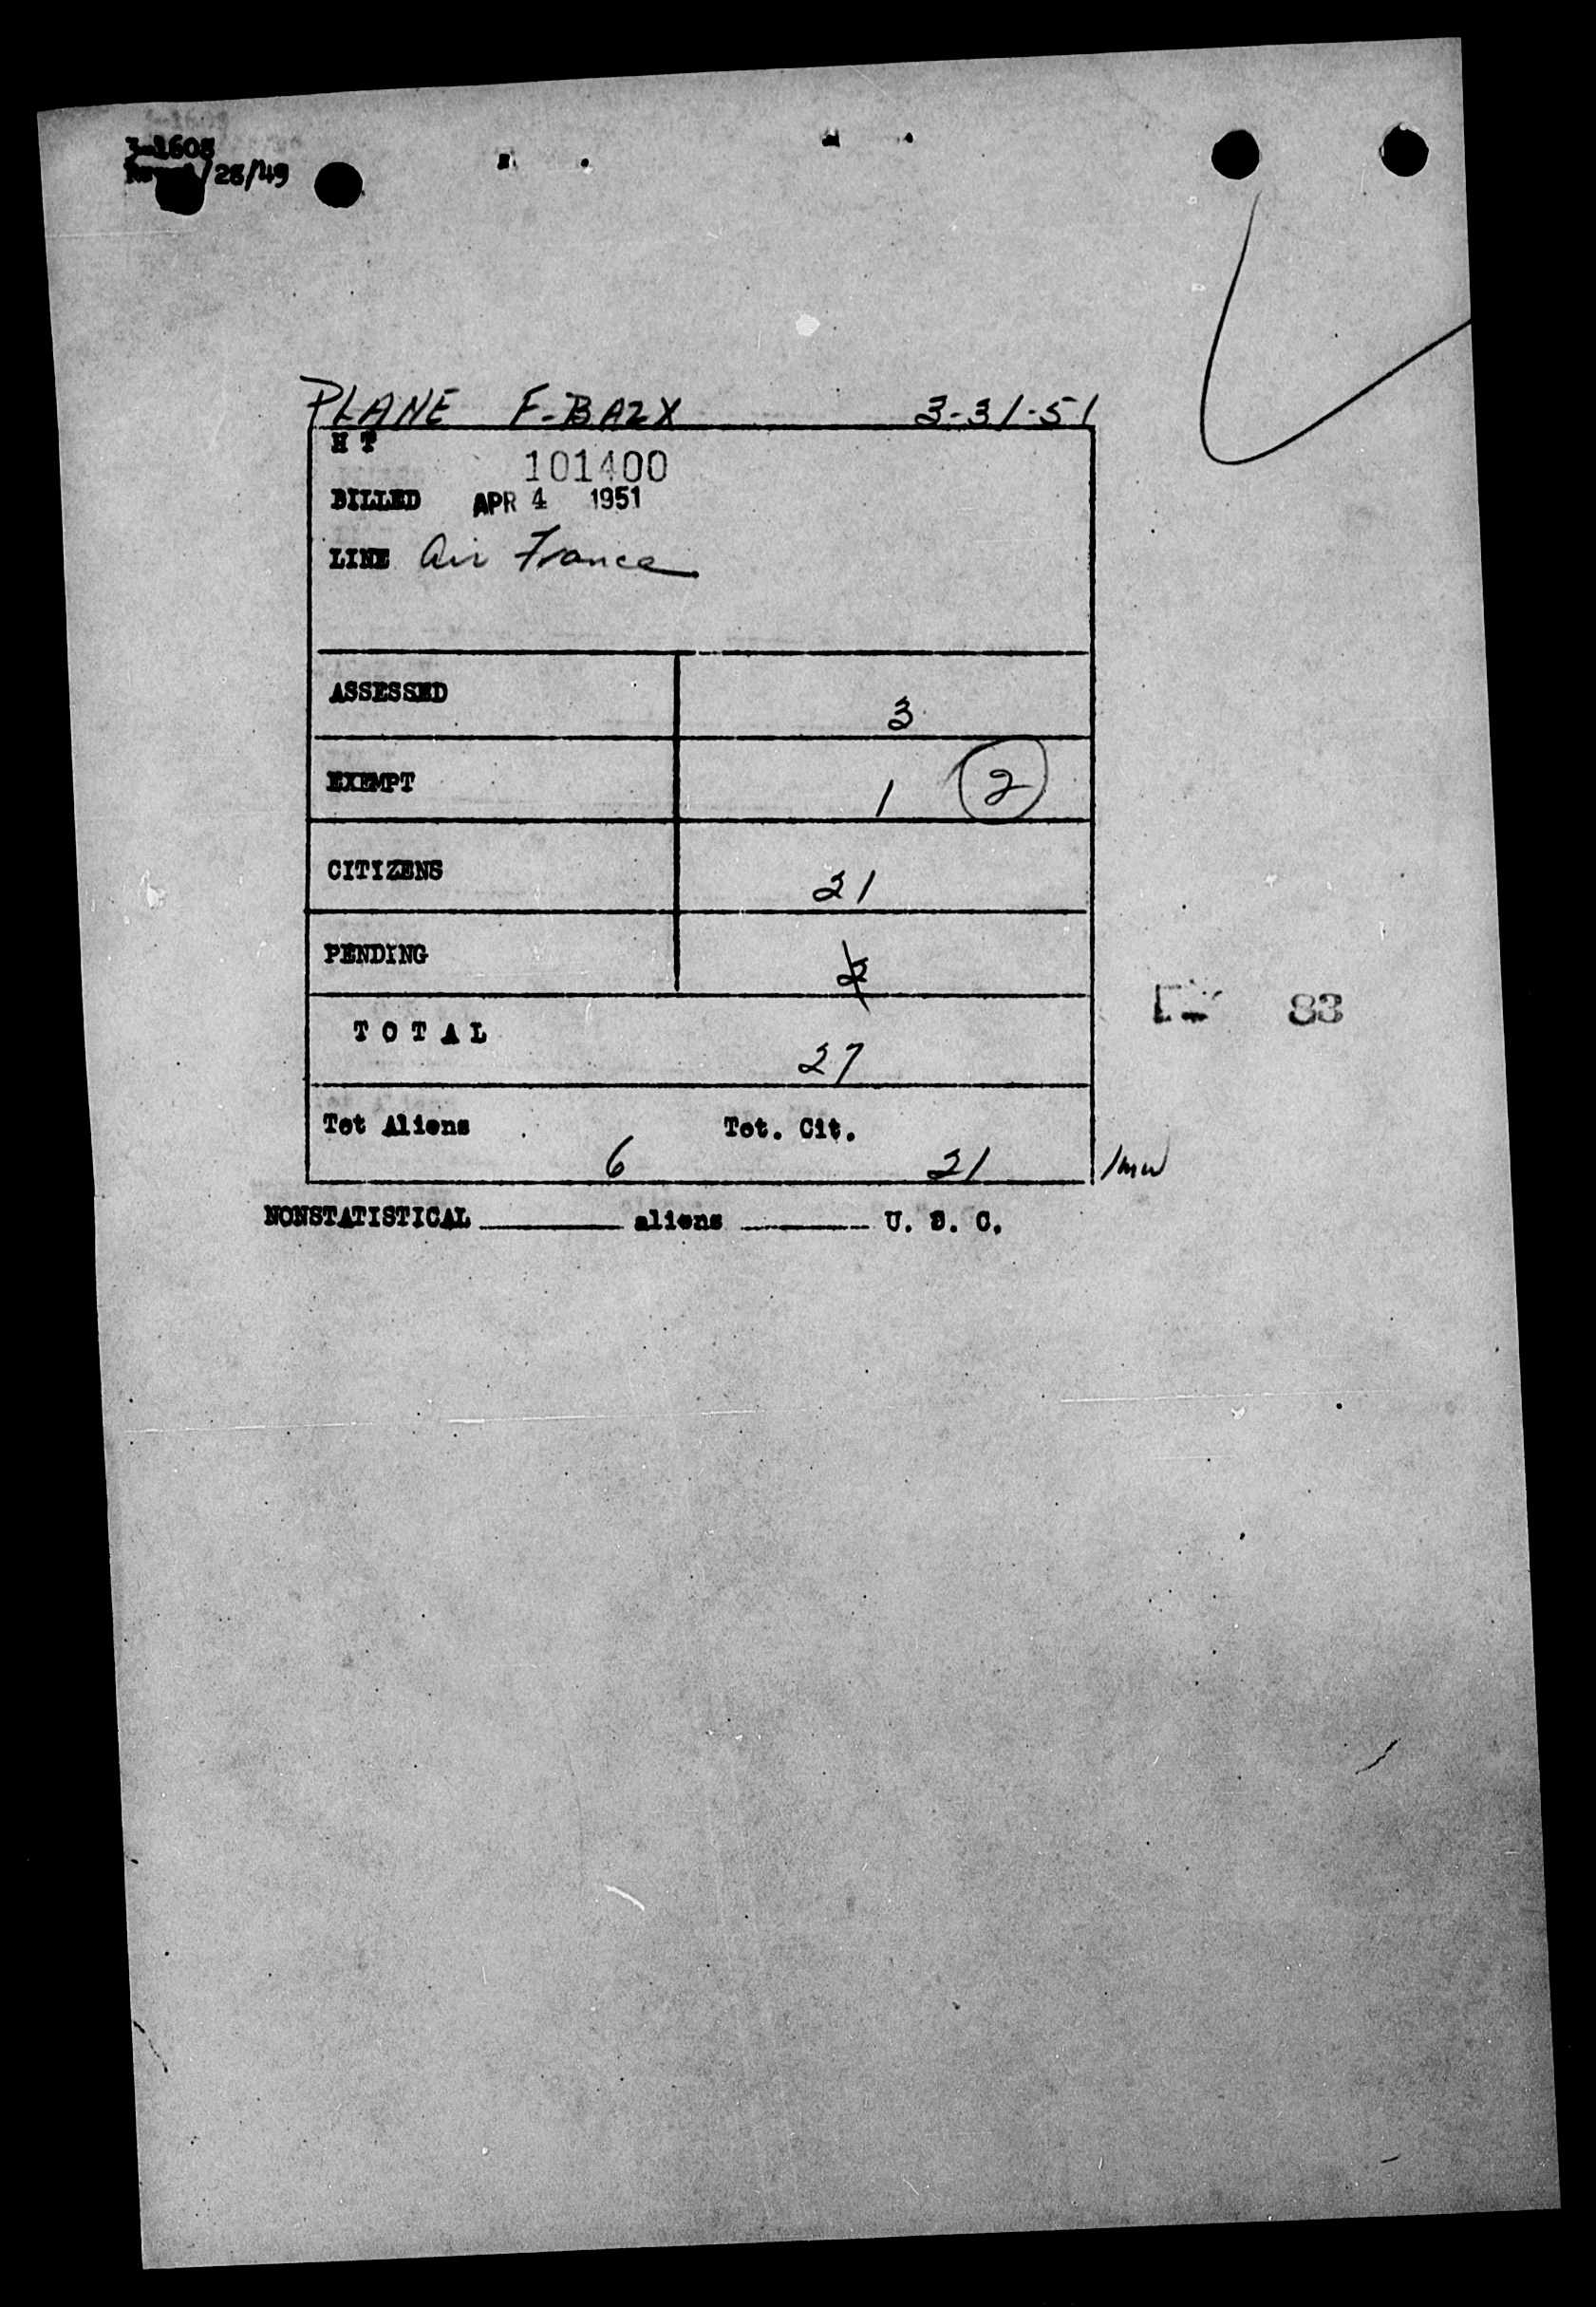 3-1608
/28/49
PLANE F-BAZX 3-31-51
H T
101400
BILLED APR 4 1951
LINE Air France
ASSESSED 3
EXEMPT 1 2
CITIZENS 21
PENDING 2
T O T A L 27
Tot Aliens 6 Tot. Cit. 21 /mw
83
NONSTATISTICAL ______ aliens ______ U. S. C.